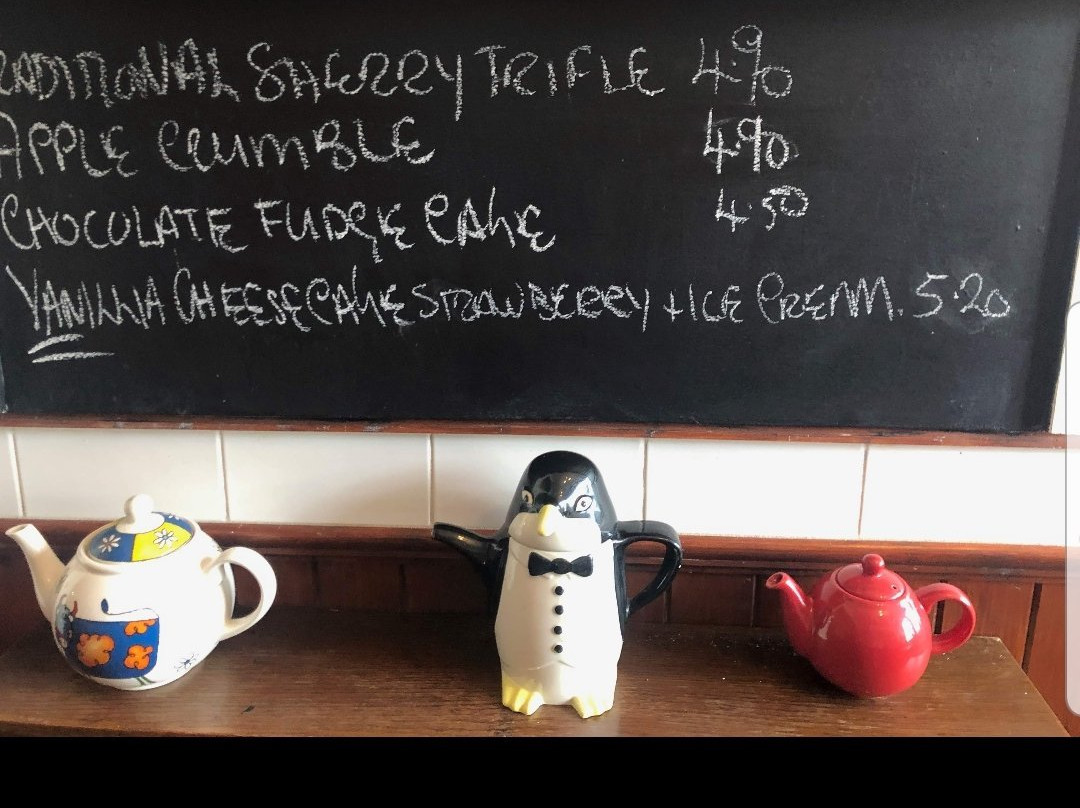 RADITIONAL SHERRY TRIFLE 4.90
APPLE CRUMBLE 4.90
CHOCOLATE FUDGE CAKE 4.50
VANILLA CHEESECAKE STRAWBERRY + ICE CREAM. 5.20